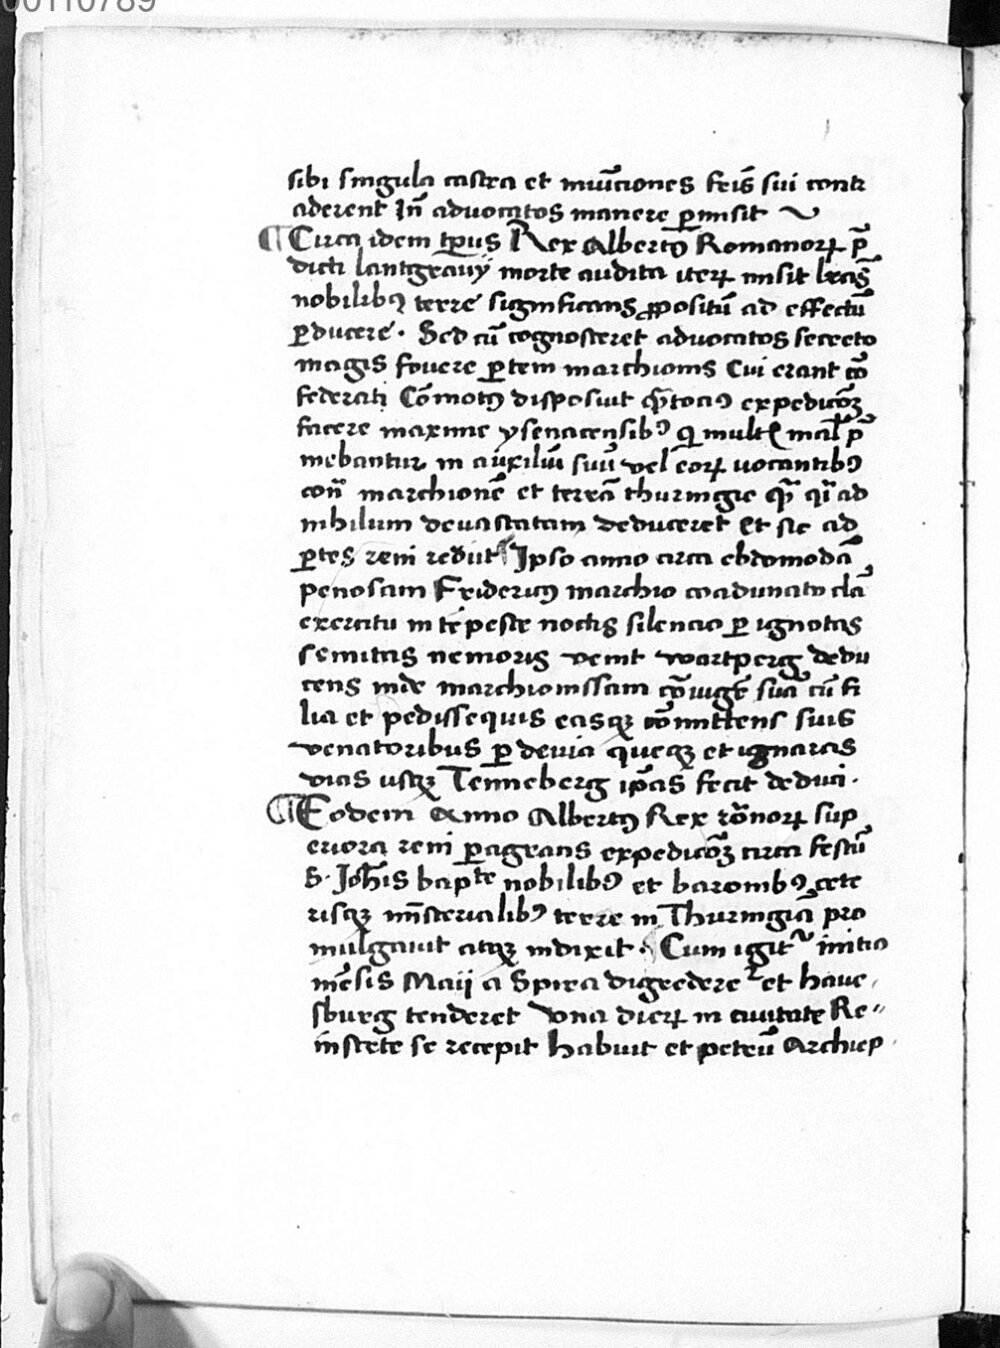 00110789
sibi singula castra et mūiciones feīs sui contr
aderent Iñ aduocatos manere ꝑmisit
¶ Circa idem tp̄us Rex Albertꝰ Romanorꝝ p̄
dicti lantgrauij morte audita iterꝝ misit lr̄as
nobilibꝰ terre significans ꝓpositū ad effectū
ꝑducere · Sed cū cognosceret aduocatos secreto
magis fouere ꝑtem marchionis Cui erant cō
federati Cōmotꝰ disposuit expedicōꝫ
facere maxime ysenacensibꝰ qui p̄
mebantur in auxiliū suū vel eorꝝ uocantibꝰ
marchionē et terrā thuringie ad
nihilum deuastatam deduceret Et sic ad
ꝑtes reni redut ¶ Ipso anno circa ebdomodā
penosam Fridericꝰ marchio coadunato clā
exercitu in tēpeste noctis silencio ꝑ ignotas
semitas nemoris venit wartperg dedu
cens inde marchionissam cōiugē suā cū fi
lia et pedissequis easqꝫ cōmittens suis
venatoribus ꝑ deuia queqꝫ et ignaras
vias usqꝫ Tenneberg ip̄as fecit deduci ·
¶ Eodem Anno Albertꝰ Rex rōnorꝝ sup
eriora reni ꝑagrans expedicōꝫ circa festū
S · Joh̄is bapte nobilibꝰ et baronibꝰ cete
risqꝫ mīsterialibꝰ terre in Thuringiā pro
mulgauit atqꝫ indixit · Cum igit᷑ initio
mēsis Maij a Spira digredere᷑ et haue
sburg tenderet vna dierꝝ in ciuitate Re〃
inscete se recepit habuit et peteū Archiep